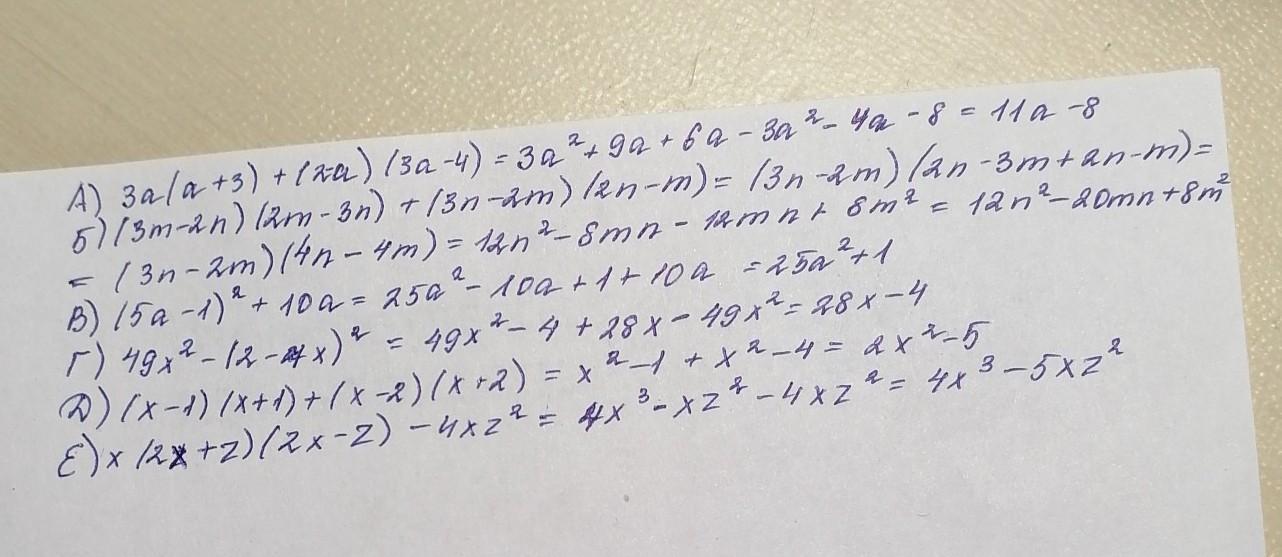 А) 3a(a+3) + (2-a) (3a-4) = 3a² + 9a + 6a - 3a² - 4a - 8 = 11a - 8
Б) (3m-2n) (2m-3n) + (3n-2m) (2n-m) = (3n-2m) (2n-3m+2n-m) =
= (3n-2m) (4n-4m) = 12n² - 8mn - 12mn + 8m² = 12n² - 20mn + 8m²
В) (5a-1)² + 10a = 25a² - 10a + 1 + 10a = 25a² + 1
Г) 49x² - (2-7x)² = 49x² - 4 + 28x - 49x² = 28x - 4
Д) (x-1) (x+1) + (x-2) (x+2) = x² - 1 + x² - 4 = 2x² - 5
Е) x (2x+z) (2x-z) - 4xz² = 4x³ - xz² - 4xz² = 4x³ - 5xz²